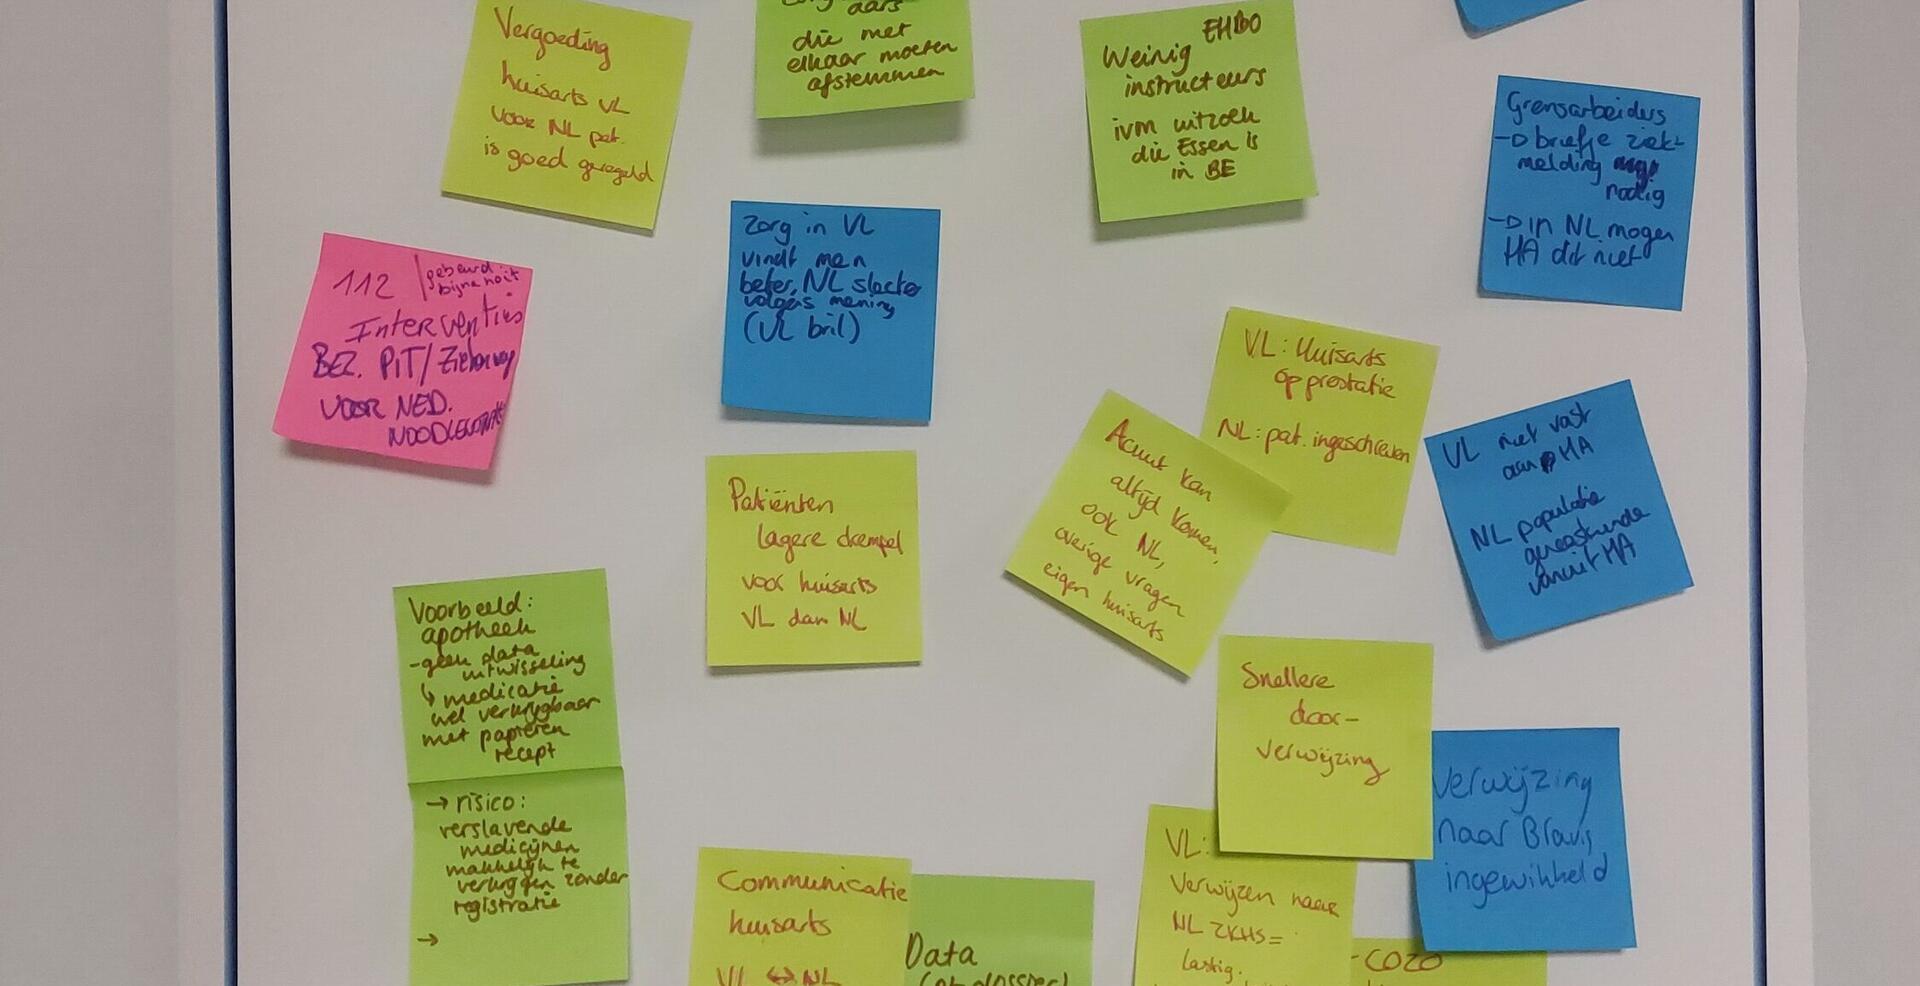 Vergoeding
huisarts VL
voor NL pat.
is goed geregeld
aars
die met
elkaar moeten
afstemmen
EHBO
Weinig
instructeurs
ivm uitzoek
die Essen is
in BE
Grensarbeiders
→ briefje ziekt
melding
nodig
→ in NL mogen
HA dit niet
112 | gebeurd
bijna nooit
Interventies
BEZ. PIT/
VOOR NED.
zorg in VL
vindt men
beter, NL slechter
volgens mening
(VL bril)
VL: Huisarts
op prestatie
NL: pat. ingeschreven
Acuut kan
altijd komen,
ook NL,
overige vragen
eigen huisarts
VL niet vast
aan HA
NL populatie
vanuit HA
Patiënten
lagere drempel
voor huisarts
VL dan NL
Voorbeeld:
apotheek
- geen data
uitwisseling
↳ medicatie
wel verkrijgbaar
met papieren
recept
→ risico:
verslavende
medicijnen
makkelijk te
verkrijgen zonder
registratie
→
Snellere
door-
verwijzing
Verwijzing
naar Bravis
ingewikkeld
VL:
Verwijzen naar
NL ZKHS =
lastig.
Communicatie
huisarts
VL ↔ NL
Data
- COZO